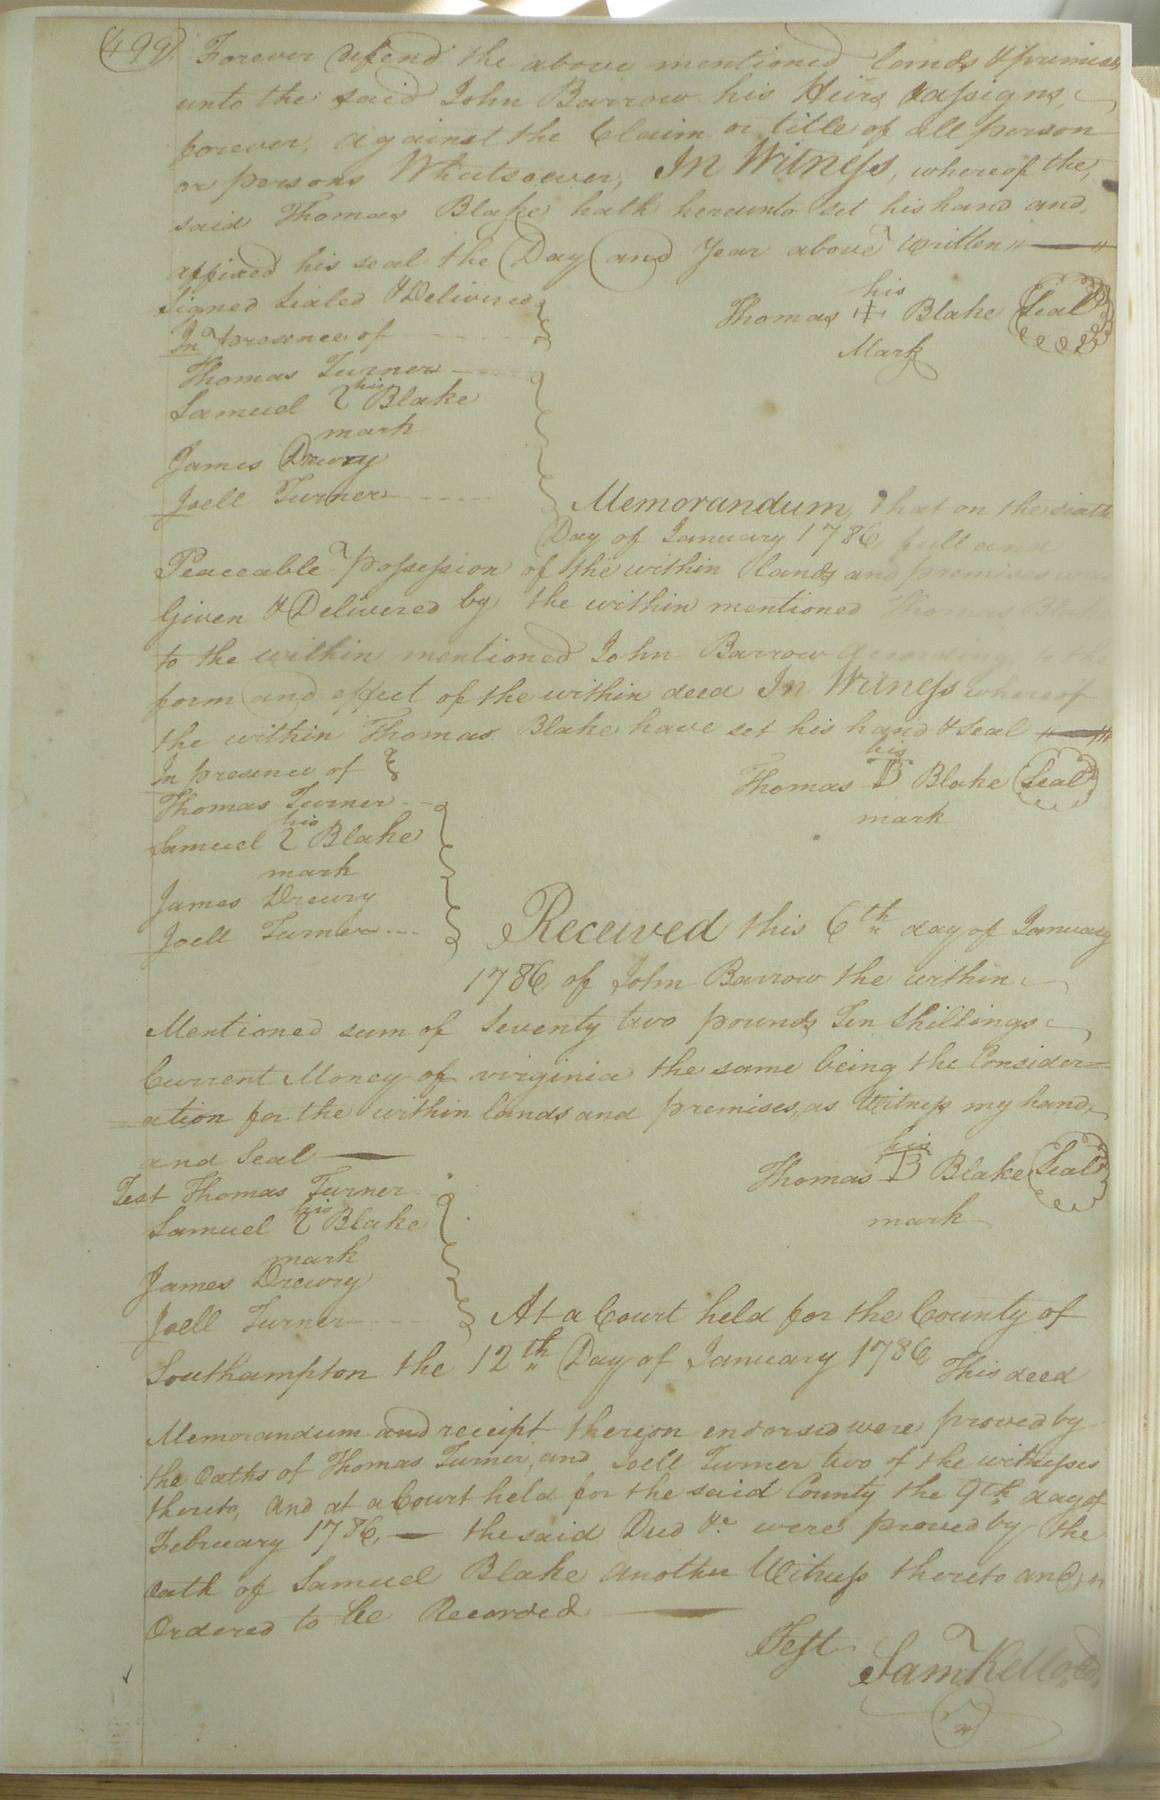 (499)
Forever defend the above mentioned lands & premises
unto the said John Barrow his Heirs & assigns,
forever, against the Claim or title of all person
or persons Whatsoever, In Witness, whereof the,
said Thomas Blake hath hereunto set his hand and,
affixed his seal the Day and Year above Written
Signed Sealed & Delivered
In presence of
his
Thomas ǂ Blake Seal
Mark
Thomas Turner
his
Samuel 2 Blake
mark
James Drewry
Joell Turner
Memorandum, That on the sixth
Day of January 1786, full and
Peaceable possession of the within lands and premises was
Given & Delivered by the within mentioned Thomas
to the within mentioned John Barrow According to the
form and effect of the within deed In Witness whereof
the within Thomas Blake have set his hand & Seal
In presence of
his
Thomas B Blake Seal
mark
Thomas Turner
his
Samuel 2 Blake
mark
James Drewry
Joell Turner
Received this 6th day of January
1786 of John Barrow the within
Mentioned sum of Seventy two pounds Ten Shillings
Current Money of virginia the same being the Consider=
=ation for the within lands and premises, as Witness my hand
and Seal
his
Thomas B Blake Seal
mark
Test Thomas Turner
his
Samuel 2 Blake
mark
James Drewry
Joell Turner
At a Court held for the County of
Southampton the 12th Day of January 1786 This deed
Memorandum and receipt thereon endorsed were proved by
the Oaths of Thomas Turner, and Joell Turner two of the witnesses
thereto, And at a Court held for the said County the 9th day of
February 1786, — the said Deed &c were proved by the
Oath of Samuel Blake Another Witness thereto and
Ordered to be Recorded
Test
Saml Kello,